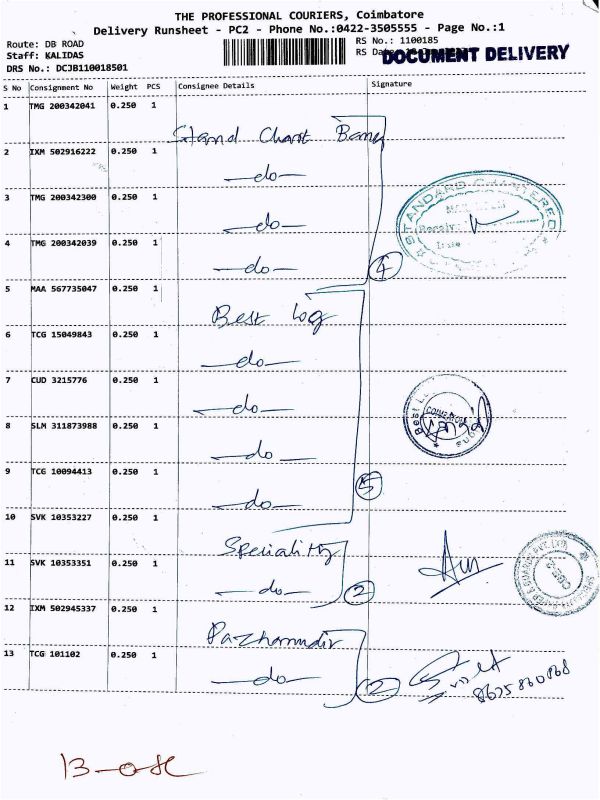 THE PROFESSIONAL COURIERS, Coimbatore
Delivery Runsheet - PC2 - Phone No.:0422-3505555 - Page No.:1
Route: DB ROAD
Staff: KALIDAS
DRS No.: DCJB110018501
RS No.: 1100185
RS Date
DOCUMENT DELIVERY
S No Consignment No Weight PCS Consignee Details Signature
1 TMG 200342041 0.250 1
Stand Chart Bang
2 IXM 502916222 0.250 1
—do—
3 TMG 200342300 0.250 1
—do—
STANDARD CHARTERED
4 TMG 200342039 0.250 1
—do—
4
5 MAA 567735047 0.250 1
Best log
6 TCG 15049843 0.250 1
—do—
7 CUD 3215776 0.250 1
—do—
8 SLM 311873988 0.250 1
—do—
9 TCG 10094413 0.250 1
—do—
5
10 SVK 10353227 0.250 1
Speciality
11 SVK 10353351 0.250 1
—do—
2
12 IXM 502945337 0.250 1
Pazhamudir
13 TCG 101102 0.250 1
—do—
2
13-ok